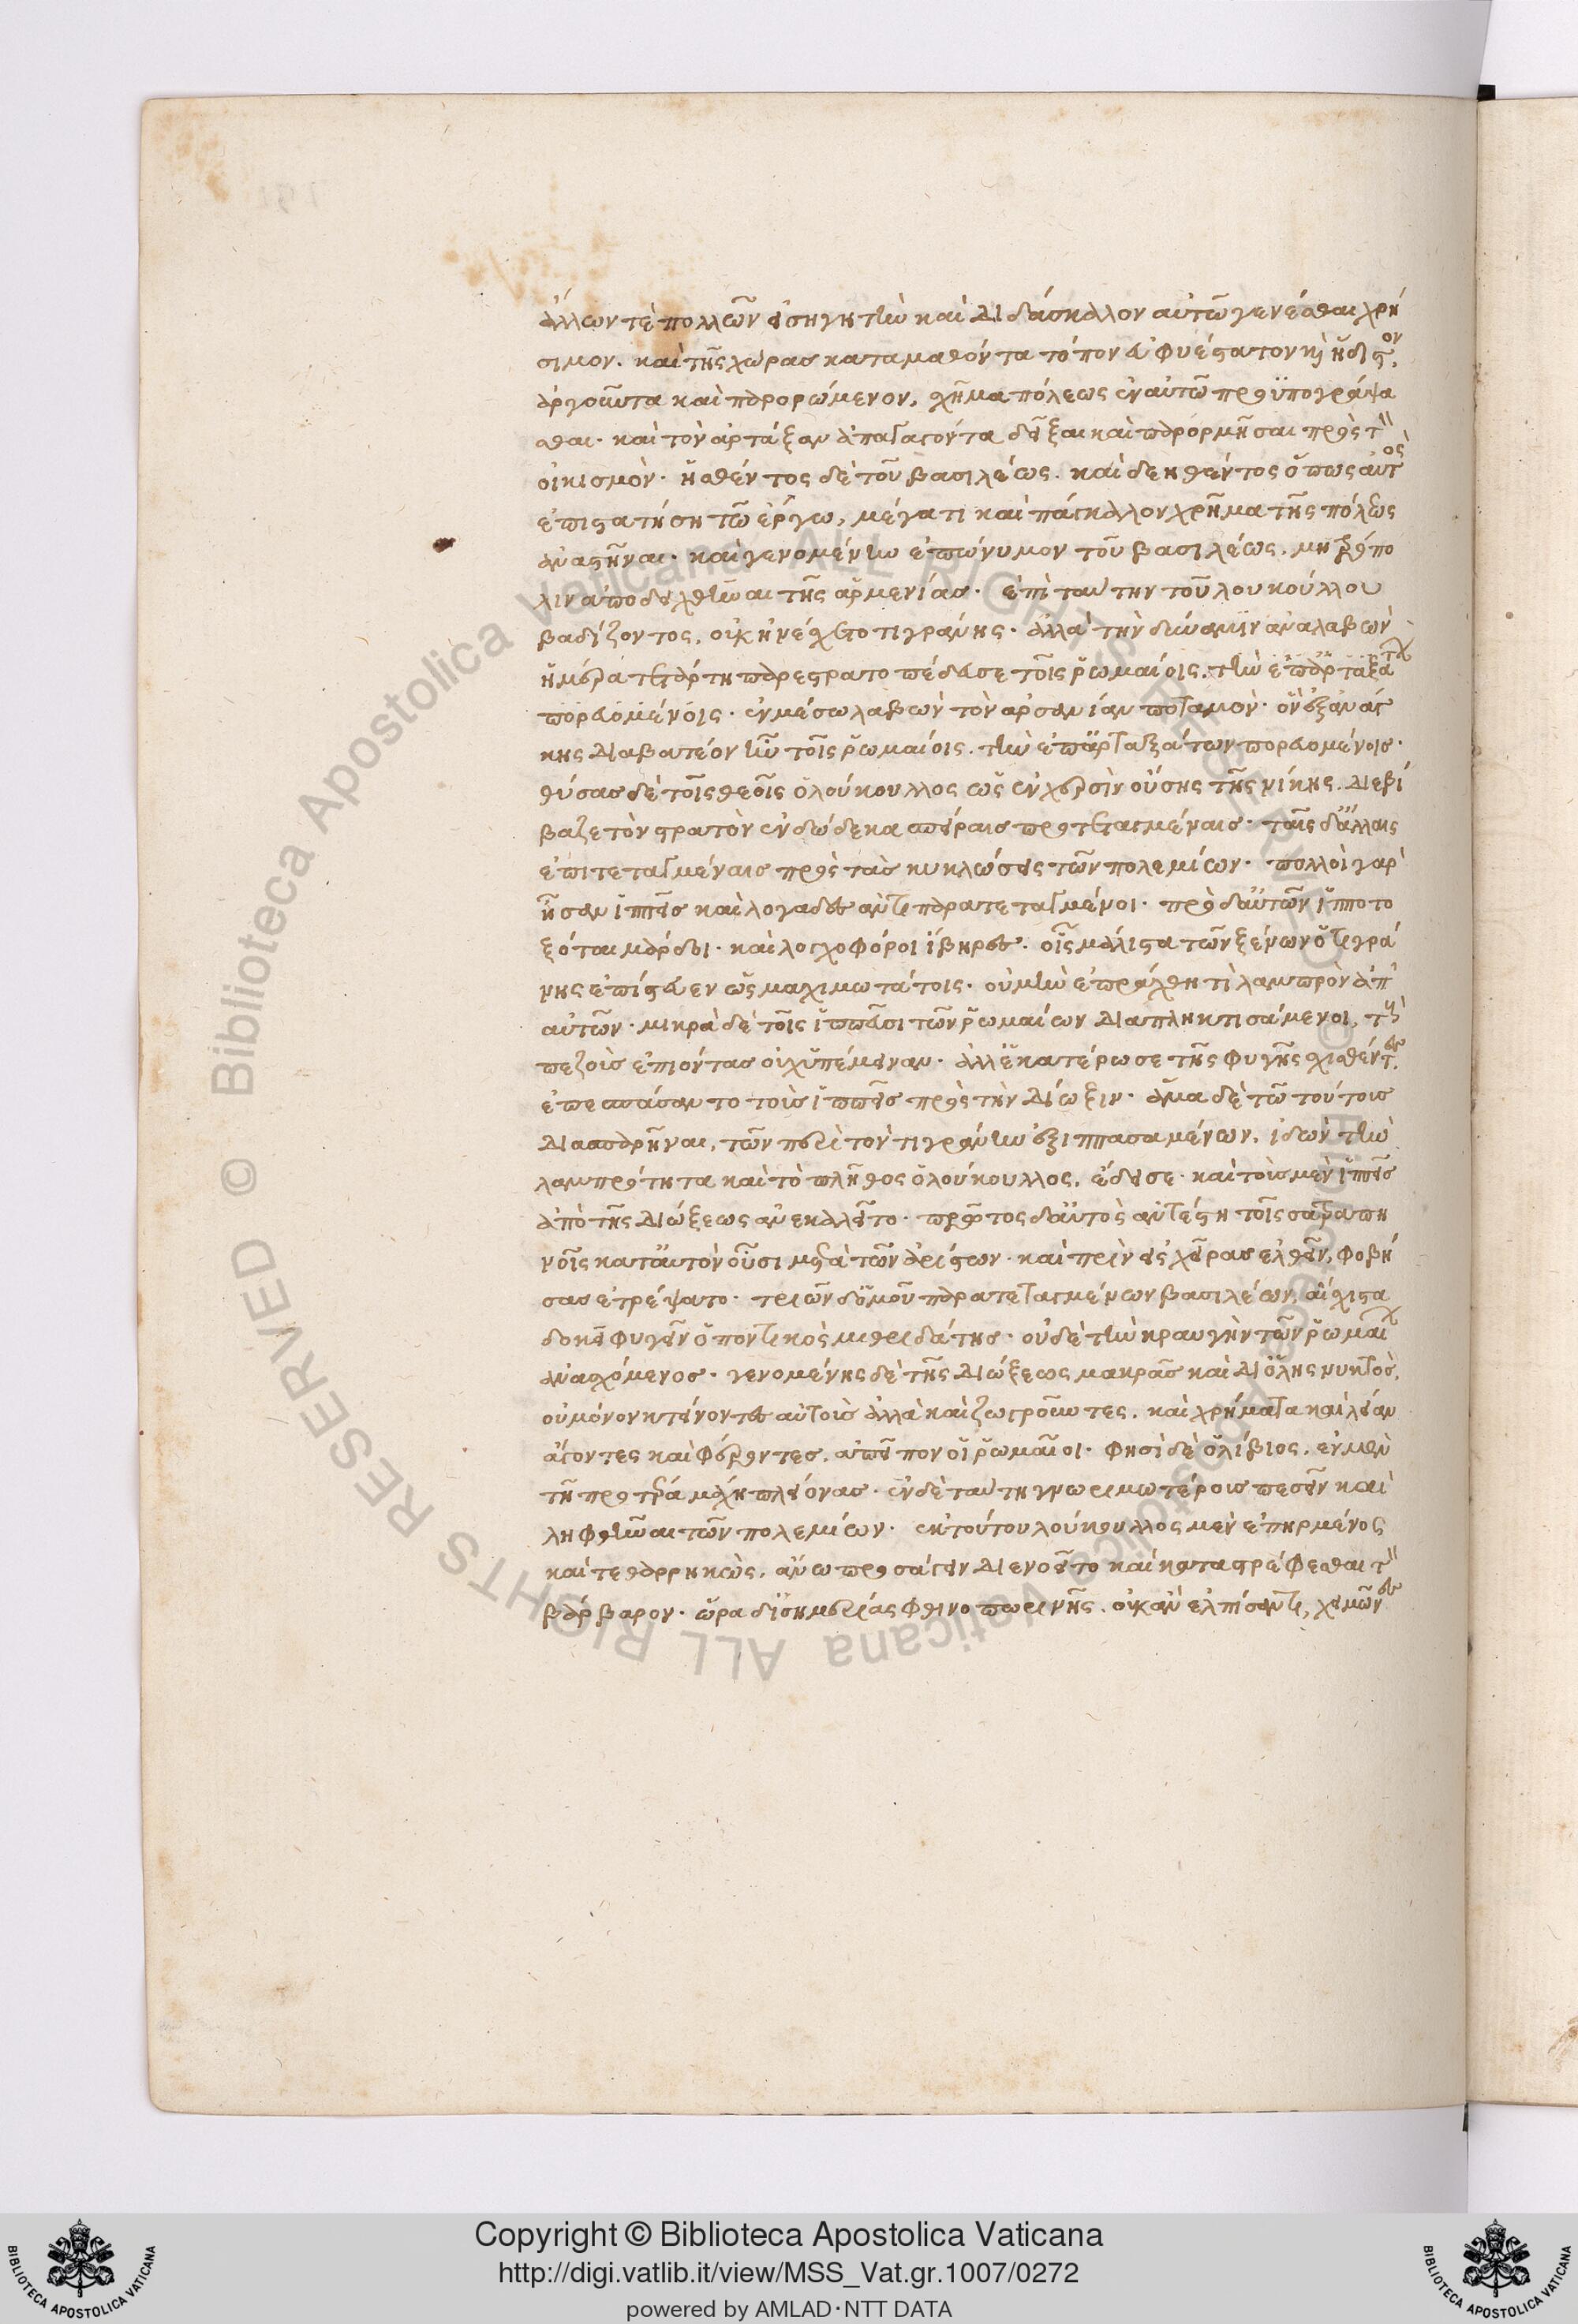 ἄλλων τὲ πολλῶν εἰσηγητὴν καὶ διδάσκαλον αὐτῶ γενέσθαι χρή
σιμον. καὶ τῆς χώρας καταμαθόντα τόπον εὐφυέστατον κ ἥδιστον,
ἀργοῦντα καὶ παρορώμενον, σχῆμα πόλεως ἐν αὐτῶ προϋπογράψα
σθαι. καὶ τὸν ἀρτάξαν ἐπαγαγόντα δεῖξαι καὶ παρορμῆσαι πρὸς τὸν
οἰκισμὸν. ἡσθέντος δὲ τοῦ βασιλέως. καὶ δεηθέντος ὅπως αὐτὸς
ἐπιστατήση τῶ ἔργω, μέγα τι καὶ πάγκαλον χρῆμα τῆς πόλεως
ἀναστῆναι. καὶ γενομένην ἐπώνυμον τοῦ βασιλέως. μητρόπο
λιν ἀποδειχθῆναι τῆς ἀρμενίας. ἐπὶ ταύτην τοῦ λουκούλλου
βαδίζοντος, οὐκ ἠνέσχετο τιγράνης. ἀλλὰ τὴν δύναμιν ἀναλαβὼν
ἡμέρα τετάρτη παρεστρατοπέδευσε τοῖς ῥωμαίοις. τὴν ἐπ ἀρταξάτων
πορευομένοις. ἐν μέσω λαβὼν τὸν ἀρσανίαν ποταμὸν. ὃν ἐξ ἀνάγ
κης διαβατέον ἦν τοῖς ῥωμαίοις. τὴν ἐπ ἀρταξάτων πορευομένοις.
θύσας δὲ τοῖς θεοῖς ὁ λούκουλλος ὡς ἐν χερσὶν οὔσης τῆς νίκης. διεβί
βαζε τὸν στρατὸν ἐν δώδεκα σπείραις προτεταγμέναις. ταῖς δ' ἄλλαις
ἐπιτεταγμέναις πρὸς τὰς κυκλώσεις τῶν πολεμίων. πολλοὶ γὰρ
ἦσαν ἱππεῖς καὶ λογάδες ἀντιπαρατεταγμένοι. πρὸ δ' αὐτῶν ἱπποτο
ξόται μάρδοι. καὶ λογχοφόροι ἴβηρες. οἷς μάλιστα τῶν ξένων ὁ τιγρά
νης ἐπίστευεν ὡς μαχιμωτάτοις. οὐ μὴν ἐπράχθη τὶ λαμπρὸν ἀπ'
αὐτῶν. μικρὰ δὲ τοῖς ἱππεῦσι τῶν ῥωμαίων διαπληκτισάμενοι, τοὺς
πεζοὺς ἐπιόντας οὐχ ὑπέμειναν. ἀλλ' ἑκατέρωσε τῆς φυγῆς σχισθέντες.
ἐπεσπάσαντο τοὺς ἱππεῖς πρὸς τὴν δίωξιν. ἅμα δὲ τῶ τούτους
διασπαρῆναι, τῶν περὶ τὸν τιγράνην ἐξιππασαμένων, ἰδὼν τὴν
λαμπρότητα καὶ τὸ πλῆθος ὁ λούκουλλος, ἔδεισε. καὶ τοὺς μὲν ἱππεῖς
ἀπὸ τῆς διώξεως ἀνεκαλεῖτο. πρῶτος δ' αὐτὸς ἀντέστη τοῖς σατραπη
νοῖς κατ' αὐτὸν οὖσι μετὰ τῶν ἀρίστων. καὶ πρὶν εἰς χεῖρας ἐλθεῖν, φοβή
σας ἐτρέψατο. τριῶν δ' ὁμοῦ παρατεταγμένων βασιλέων, αἴσχιστα
δοκεῖ φυγεῖν ὁ ποντικὸς μιθριδάτης. οὐδὲ τὴν κραυγὴν τῶν ῥωμαίων
ἀνασχόμενος. γενομένης δὲ τῆς διώξεως μακρᾶς καὶ δι' ὅλης νυκτὸς,
οὐ μόνον κτείνοντες αὐτοὺς ἀλλὰ καὶ ζωγροῦντες. καὶ χρήματα καὶ λείαν
ἄγοντες καὶ φέροντες. ἀπεῖπον οἱ ῥωμαῖοι. φησὶ δὲ ὁ λίβιος. ἐν μὲν
τῆ προτέρα μάχη πλείονας. ἐν δὲ ταύτη γνωριμωτέρους πεσεῖν καὶ
ληφθῆναι τῶν πολεμίων. ἐκ τούτου λούκουλλος μὲν ἐπηρμένος
καὶ τεθαρρηκὼς. ἄνω προσάγειν διενοεῖτο καὶ καταστρέφεσθαι τὸν
βάρβαρον. ὥρα δ' ἰσημερίας φθινοπωρινῆς. οὐκ ἂν ἐλπίσαντι, χειμῶνες